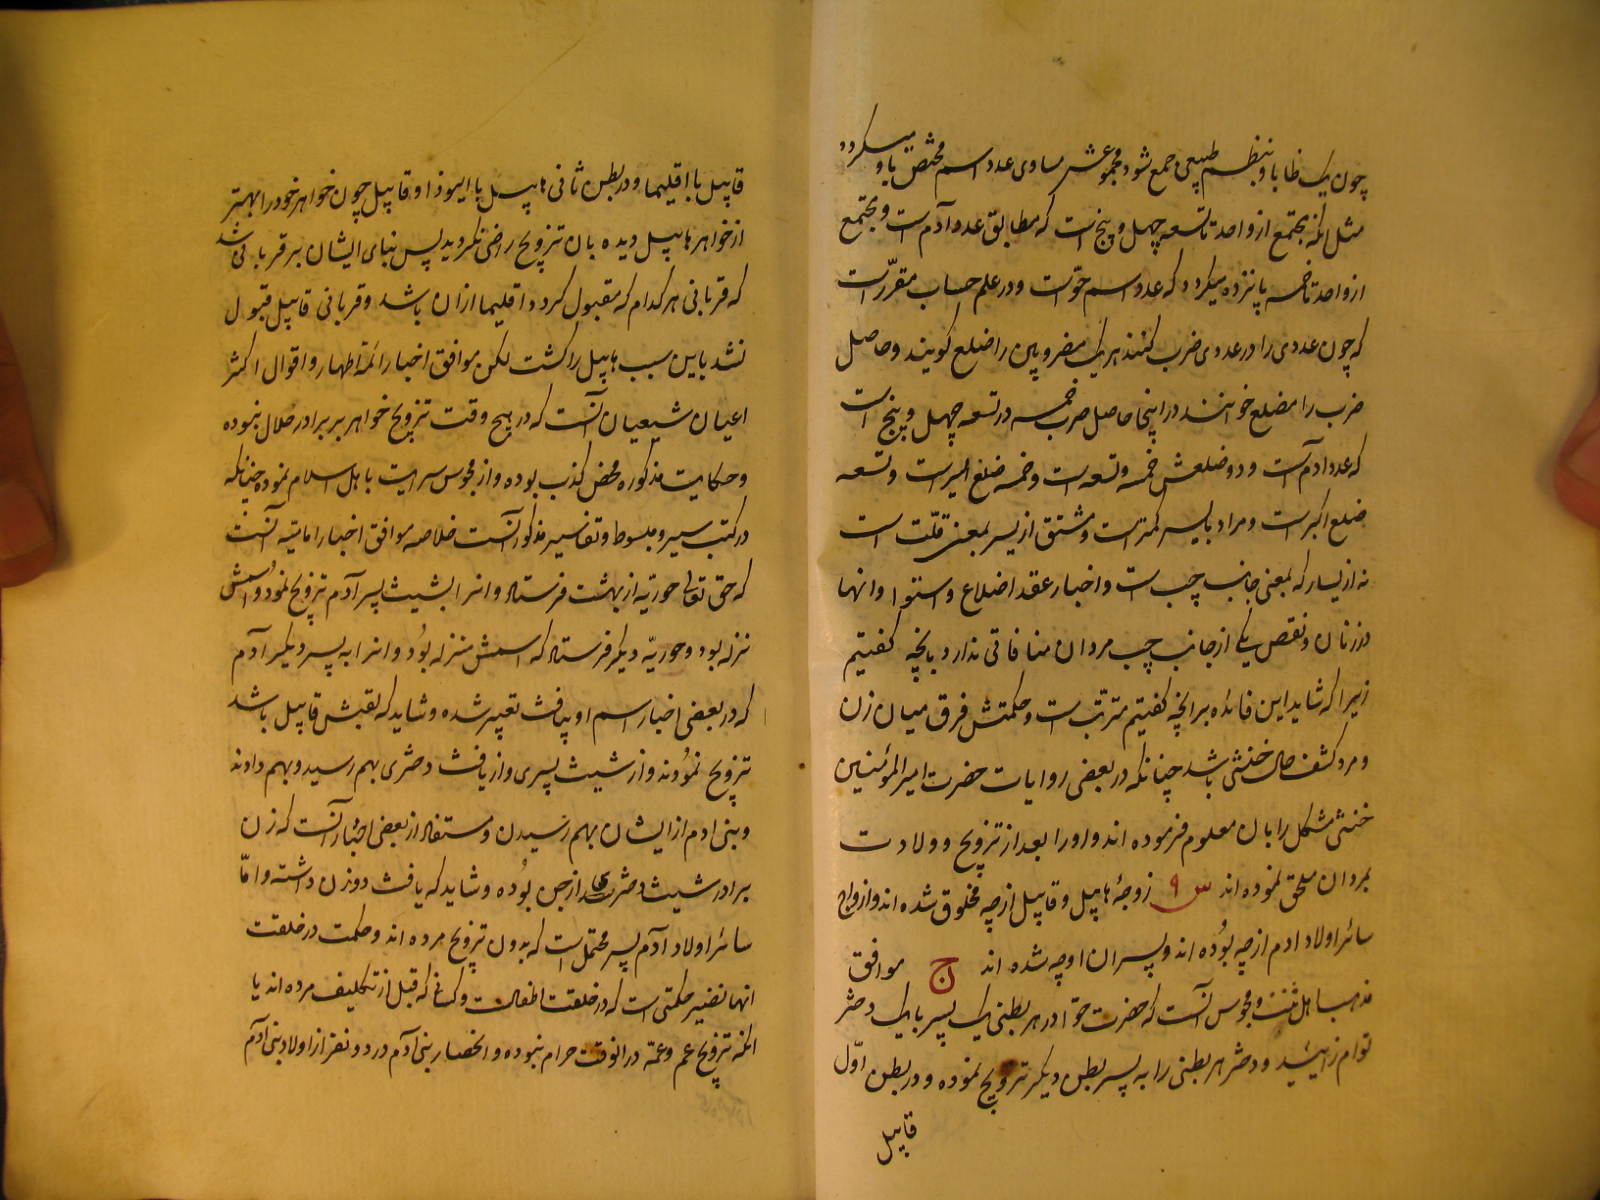 چون یک ظا با و بنظم طبیعی جمع شود مجموعش مساوی عدد اسم مختص باو میکردد
مثل انکه مجتمع از واحد تا تسعه چهل و پنج است که مطابق عدد آدم است و مجتمع
از واحد تا خمسه پانزده میکردد که عدد اسم حوّاست و در علم حساب مقرّر است
که چون عددی را در عددی ضرب کنند هر یک مضروبین را ضلع کویند و حاصل
ضرب را مضلع خوانند در اینجا حاصل ضرب خمسه در تسعه چهل و پنج است
که عدد ادم است و دو ضلعش خمسه و تسعه است و خمسه ضلع ایسر است و تسعه
ضلع اکبر است و مراد بایسر کمتر است و مشتق از یسر بمعنی قلّت است
نه از یسار که بمعنی جانب چپ است و اخبار عقد اضلاع و استوا و انها
در زنان و نقص یکی از جانب چپ مردان منافاتی ندارد بانچه کفتیم
زیرا که شاید این فائده بر انچه کفتیم مترتّب است و حکمتش فرق میان زن
و مرد و کشف حال خنثی باشد چنانکه در بعضی روایات حضرت امیرالمؤمنین
خنثی مشکل را بان معلوم فرموده اند و او را بعد از تزویج و ولادت
بمردان ملحق نموده اند س ۹ زوجهٔ هابیل و قابیل از چه مخلوق شده اند و ازواج
سائر اولاد ادم از چه بوُده اند و پسران او چه شده اند ج موافق
مذهب اهل سنّت و مجوس آنست که حضرت حوّا در هر بطنی یک پسر با یک دختر
توام زائید و دختر هر بطنی را به پسر بطن دیکر تزویج نموده و در بطن اوّل
قابیل
قابیل با اقلیما و در بطن ثانی هابیل با لیوذا و قابیل چون خواهر خود را بهتر
از خواهر هابیل دیده بان تزویج راضی نکردید پس بنای ایشان بر قربانی شد
که قربانی هر کدام که مقبول کردد اقلیما از ان باشد و قربانی قابیل قبول
نشد باین سبب هابیل را کشت لکن موافق اخبار ائمّهٔ اطهار و اقوال اکثر
اعیان شیعیان آنست که در هیچ وقت تزویج خواهر بر برادر حلال نبوده
و حکایت مذکوره محض کذب بوده و از مجوس سرایت باهل اسلام نموده چنانکه
در کتب سیر و مبسوط و تفاسیر مذکور است خلاصه موافق اخبار امامیّه آنست
که حق تعالی حوریّه از بهشت فرستاد و انرا بشیث پسر آدم تزویج نمود و اسمش
نزله بود و حوریّه دیکر فرستاد که اسمش منزله بوُد و انرا به پسر دیکر آدم
که در بعضی اخبار اسم او بیافث تعبیر شده و شاید که لقبش قابیل باشد
تزویج نموُدند و از شیث پسری و از یافث دختری بهم رسید و بهم دادند
و بنی ادم از ایشان بهم رسیدن و مستفاد از بعضی اخبار آنست که زن
برادر شیث دختر از جن بوُده و شاید که یافث دو زن داشته و امّا
سائر اولاد آدم پس محتمل است که بدون تزویج مرده اند و حکمت در خلقت
انها نضیر حکمتی است که در خلقت اطفالست و کسانی که قبل از تکلیف مرده اند یا
انکه تزویج عم و عمّه در انوقت حرام نبوده و انحصار بنی آدم در دو نفر از اولاد بنی آدم